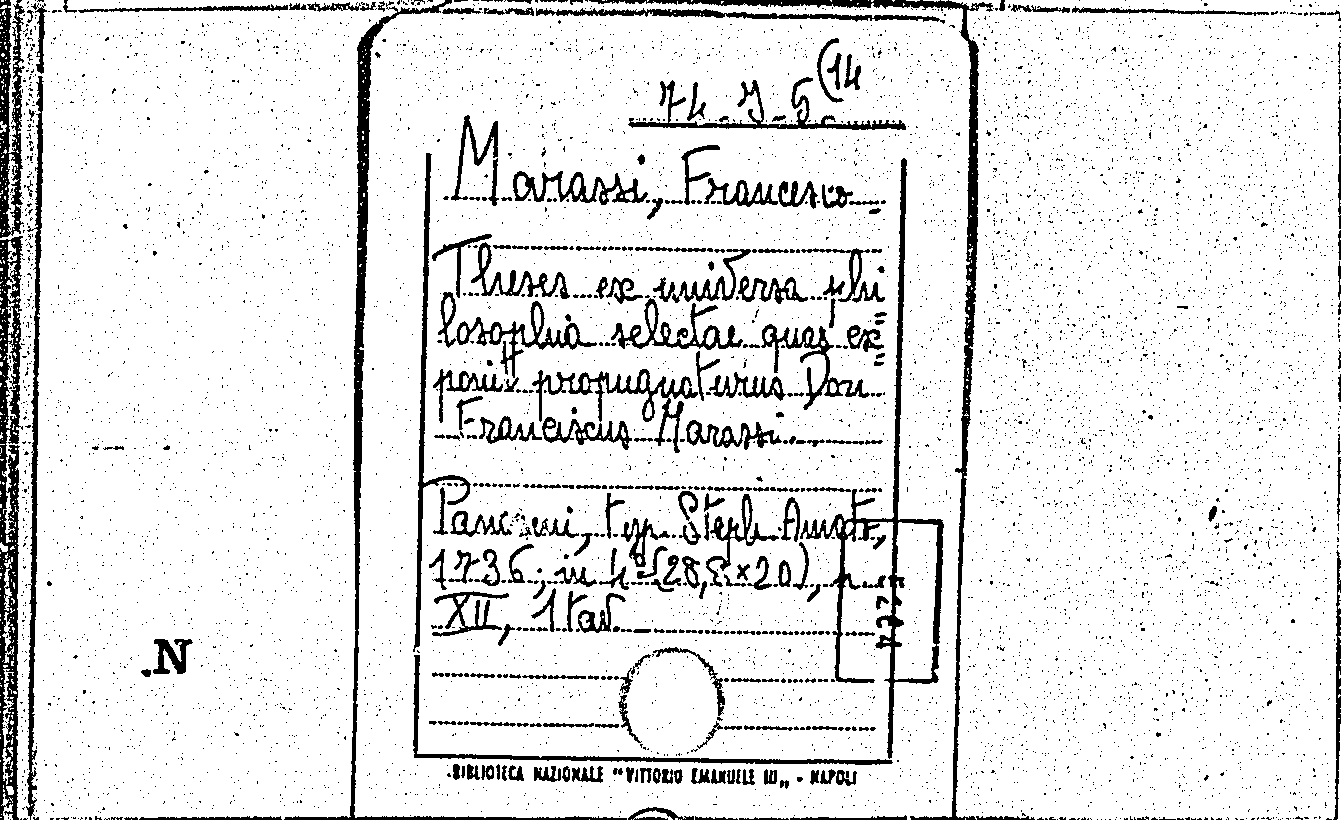 74.J.5(14
Marassi, Francesco.
Theses ex universa phi
losophia selectae quas ex=
ponit propugnaturus Don
Franciscus Marassi...
Panormi, typ. Steph. Amato,
1736; in 4º (28,5×20), p.
XII, 1 tav.
.N
BIBLIOTECA NAZIONALE "VITTORIO EMANUELE III„ - NAPOLI